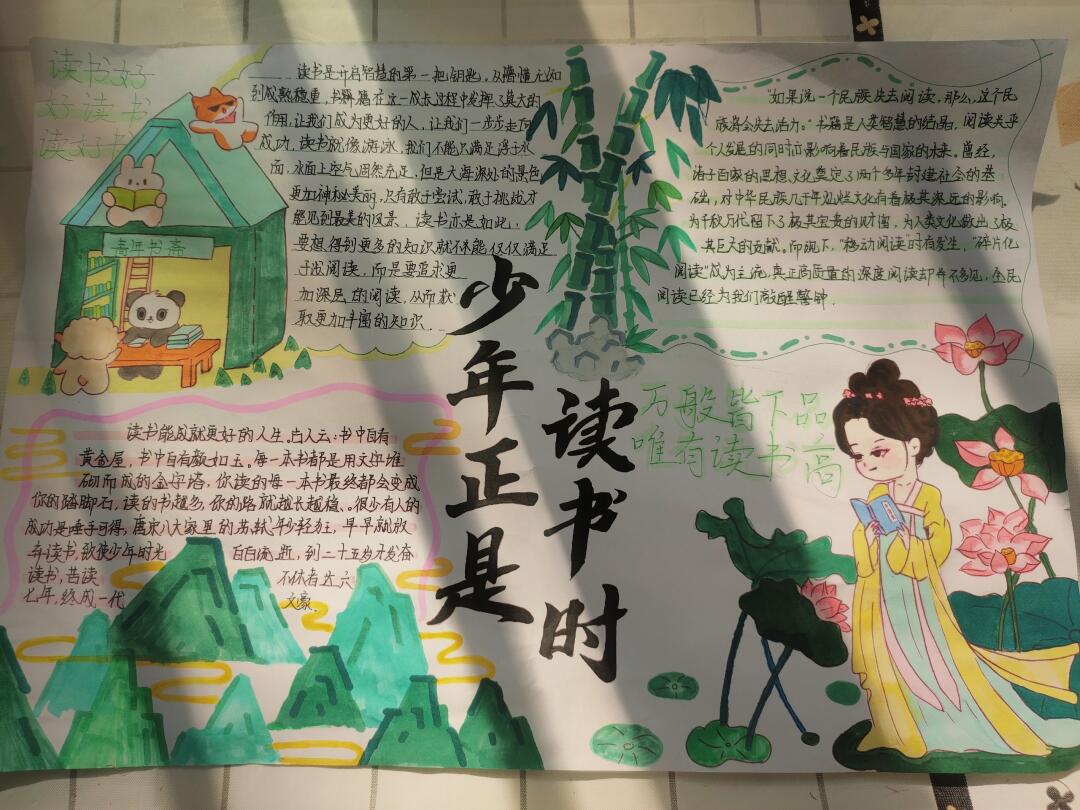 读书好
好读书
读好书
青年书斋
读书是开启智慧的第一把钥匙，从懵懂无知
到成熟稳重，书籍在这一成长过程中发挥了莫大的
作用，让我们成为更好的人，让我们一步步走向
成功，读书就像游泳，我们不能只满足浮于水
面，水面上空气固然充足，但是大海深处的景色
更加神秘美丽，只有敢于尝试，敢于挑战才
能见到最美的风景、读书亦是如此：
要想得到更多的知识就不能仅仅满足
于浅阅读，而是要追求更
加深层的阅读，从而获
取更加丰富的知识．
"如果说一个民族失去阅读，那么，这个民
族将会失去活力。"书籍是人类智慧的结晶，阅读关乎
个人发展的同时亦影响着民族与国家的未来，曾经，
诸子百家的思想文化奠定了两个多年封建社会的基
础，对中华民族几千年灿烂文化有着极其深远的影响，
为千秋万代留下了极其宝贵的财富，为人类文化做出了极
其巨大的贡献。而现下，"移动阅读时有发生，"碎片化
阅读"成为主流，真正高质量的深度阅读却并不多见，全民
阅读已经为我们敲醒警钟．
少年正是
读书时
万般皆下品
唯有读书高
读书能成就更好的人生。古人云：书中自有
黄金屋，书中自有颜如玉。每一本书都是用文字堆
砌而成的金字塔，你读的每一本书最终都会变成
你的踏脚石，读的书越多，你的路就越长越稳。很少有人的
成功是唾手可得，唐宋八大家里的苏轼年少轻狂，早早就放
弃读书，欲使少年时光 白白流逝，到二十五岁才发奋
读书，苦读 不休者近六
七年，终成一代 文豪．